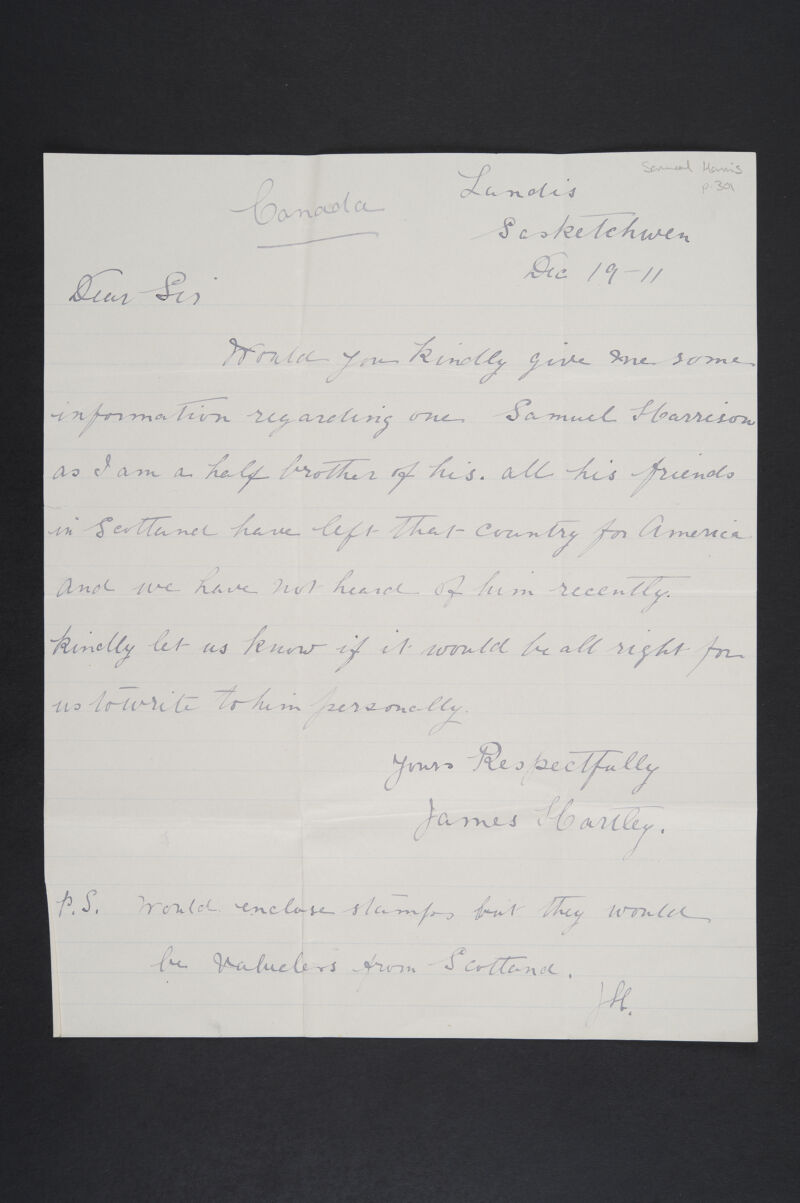 Samuel Harris
p. 301
Canada
Landis
Sasketchwen
Dec 19-11
Dear Sir
Would you kindly give me some
information regarding one Samuel Harrison
as I am a half brother of his. all his friends
in Scotland have left that country for America
and we have not heard of him recently.
kindly let us know if it would be all right for
us to write to him personally.
Yours Respectfully
James Hartley.
P.S. Would enclose stamps but they would
be valueless from Scotland.
JH.